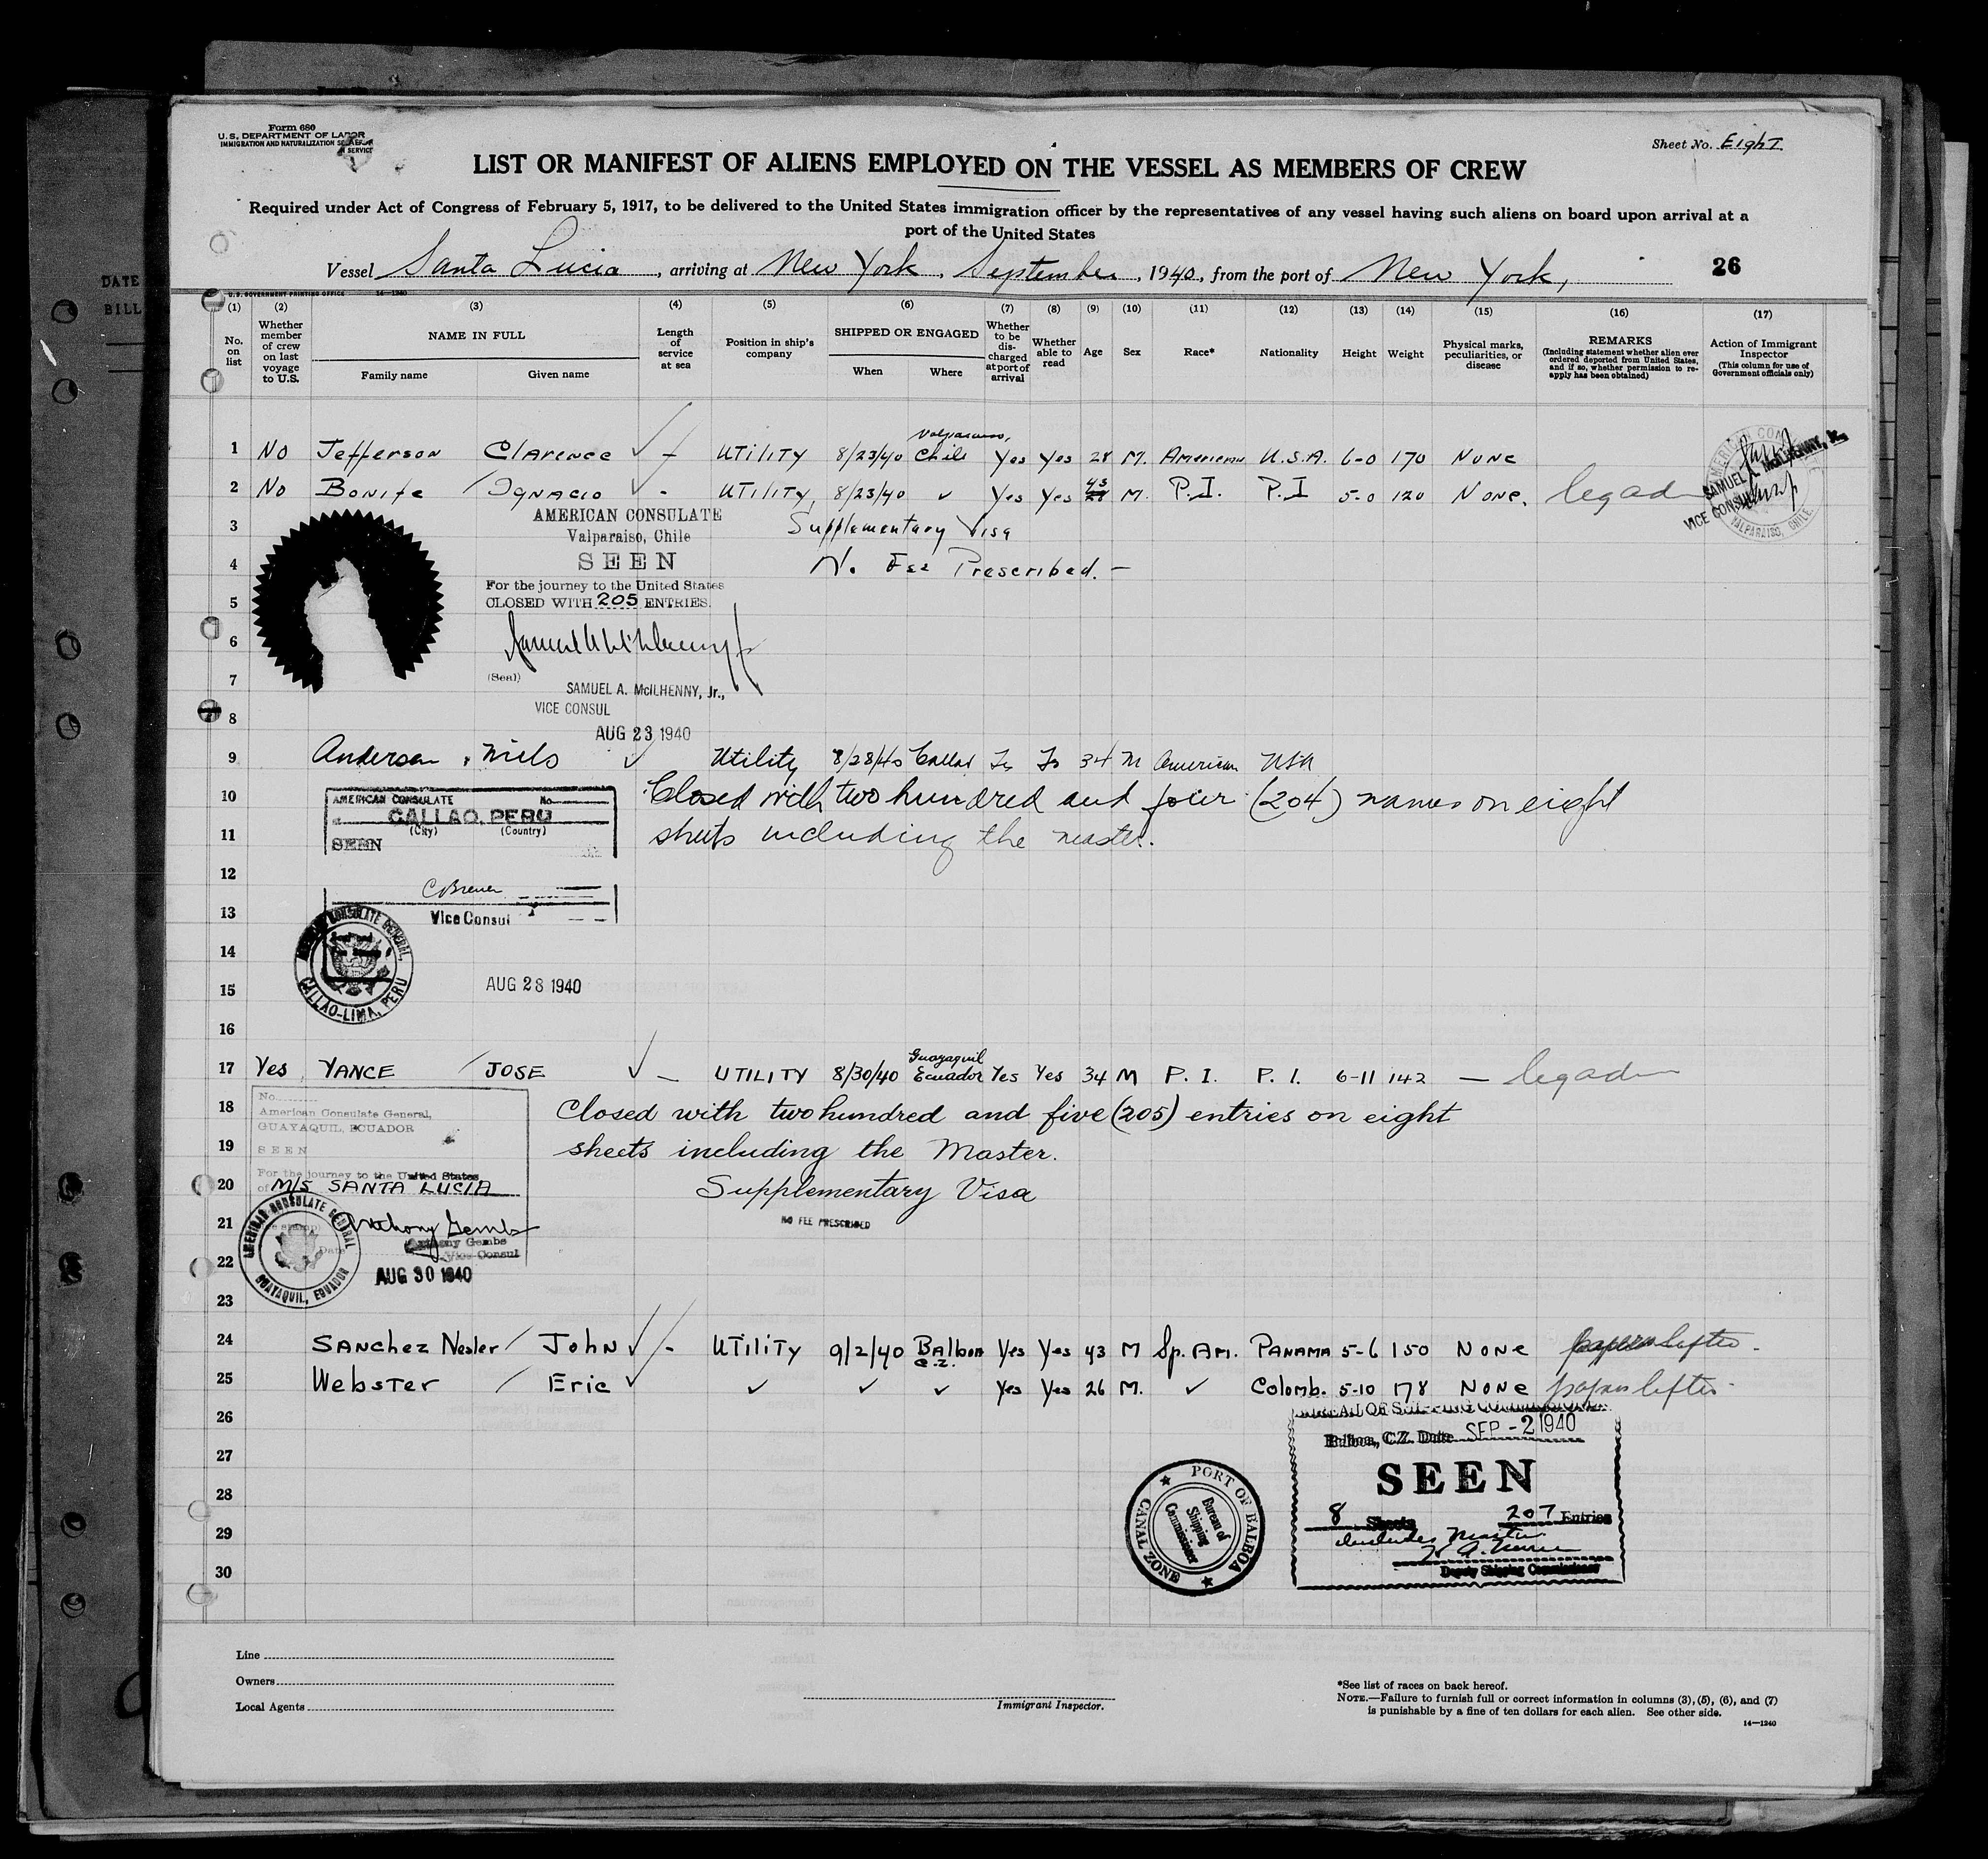 Form 680
U. S. DEPARTMENT OF LABOR
IMMIGRATION AND NATURALIZATION SERVICE
Sheet No. Eight
LIST OR MANIFEST OF ALIENS EMPLOYED ON THE VESSEL AS MEMBERS OF CREW
Required under Act of Congress of February 5, 1917, to be delivered to the United States immigration officer by the representatives of any vessel having such aliens on board upon arrival at a
port of the United States
Vessel Santa Lucia, arriving at New York, September, 1940, from the port of New York,
26
U. S. GOVERNMENT PRINTING OFFICE 14-1240
(1) (2) (3) (4) (5) (6) (7) (8) (9) (10) (11) (12) (13) (14) (15) (16) (17)
No. on list
Whether member of crew on last voyage to U.S.
NAME IN FULL
Family name Given name
Length of service at sea
Position in ship's company
SHIPPED OR ENGAGED
When Where
Whether to be discharged at port of arrival
Whether able to read
Age
Sex
Race*
Nationality
Height
Weight
Physical marks, peculiarities, or disease
REMARKS
(Including statement whether alien ever ordered deported from United States, and if so, whether permission to reapply has been obtained)
Action of Immigrant Inspector
(This column for use of Government officials only)
1 No Jefferson Clarence ✓ - Utility 8/23/40 Valparaiso, Chile Yes Yes 28 M. American U.S.A. 6-0 170 None
2 No Bonife / Ignacio ✓ - Utility, 8/23/40 ✓ Yes Yes 43 M. P.I. P.I 5-0 120 None.
AMERICAN CON
SAMUEL A. McILHENNY, Jr.
VICE CONSUL
VALPARAISO, CHILE.
3 AMERICAN CONSULATE Supplementary Visa
Valparaiso, Chile
4 SEEN No Fee Prescribed. -
For the journey to the United States
5 CLOSED WITH 205 ENTRIES.
6
7 (Seal)
SAMUEL A. McILHENNY, Jr.,
8 VICE CONSUL
AUG 23 1940
9 Anderson, Niels ✓ Utility 8/28/40 Callao 34 M American USA
10 AMERICAN CONSULATE No. Closed with two hundred and four (204) names on eight
CALLAO, PERU
(City) (Country)
11 SEEN sheets including the master.
12
13 Vice Consul
AMERICAN CONSULATE GENERAL,
CALLAO-LIMA, PERU
14
15 AUG 28 1940
16
17 Yes YANCE / JOSE ✓ - UTILITY 8/30/40 Guayaquil Ecuador Yes Yes 34 M P. I. P. I. 6-11 142 -
No.
18 American Consulate General, Closed with two hundred and five (205) entries on eight
GUAYAQUIL, ECUADOR
19 SEEN sheets including the Master.
For the journey to the United States
20 of M/S SANTA LUCIA Supplementary Visa
21 Anthony Gembs NO FEE PRESCRIBED
Anthony Gembs
Vice Consul
22 AUG 30 1940
AMERICAN CONSULATE GENERAL
GUAYAQUIL, ECUADOR
23
24 Sanchez Nesler / John ✓ - Utility 9/2/40 Balboa C.Z. Yes Yes 43 M Sp. Am. Panama 5-6 150 None
25 Webster / Eric ✓ ✓ ✓ ✓ Yes Yes 26 M. ✓ Colomb. 5-10 178 None
26
Balboa, C.Z. Date SEP - 2 1940
27 SEEN
28 8 Sheets 207 Entries
29 Includes Master
Deputy Shipping Commissioner
30
PORT OF BALBOA
CANAL ZONE
Bureau of Shipping Commissioner
Line
Owners
Local Agents
Immigrant Inspector.
*See list of races on back hereof.
NOTE.—Failure to furnish full or correct information in columns (3), (5), (6), and (7)
is punishable by a fine of ten dollars for each alien. See other side.
14-1240
DATE
BILL